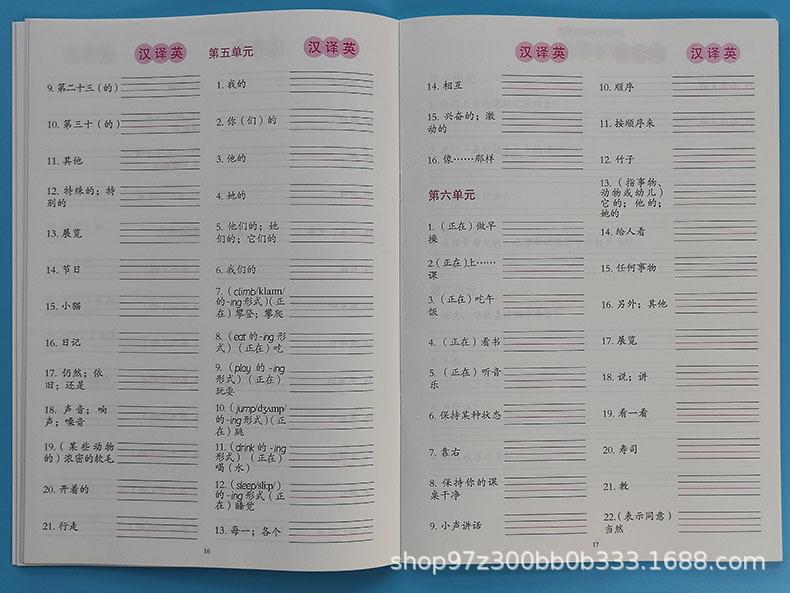 汉译英
9. 第二十三（的）
10. 第三十（的）
11. 其他
12. 特殊的；特
别的
13. 展览
14. 节日
15. 小猫
16. 日记
17. 仍然；依
旧；还是
18. 声音；响
声；嗓音
19.（某些动物
的）浓密的软毛
20. 开着的
21. 行走
第五单元
汉译英
1. 我的
2. 你（们）的
3. 他的
4. 她的
5. 他们的；她
们的；它们的
6. 我们的
7.（climb/klaɪm/
的 -ing 形式）（正
在）攀登；攀爬
8.（eat 的 -ing 形
式）（正在）吃
9.（play 的 -ing
形式）（正在）
玩耍
10.（jump/dʒʌmp/
的 -ing 形式）（正
在）跳
11.（drink 的 -ing
形式）（正在）
喝（水）
12.（sleep/sliːp/）
的 -ing 形式（正
在）睡觉
13. 每一；各个
16
汉译英
14. 相互
15. 兴奋的；激
动的
16. 像……那样
第六单元
1.（正在）做早
操
2.（正在）上……
课
3.（正在）吃午
饭
4.（正在）看书
5.（正在）听音
乐
6. 保持某种状态
7. 靠右
8. 保持你的课
桌干净
9. 小声讲话
汉译英
10. 顺序
11. 按顺序来
12. 竹子
13.（指事物、
动物或幼儿）
它的；他的；
她的
14. 给人看
15. 任何事物
16. 另外；其他
17. 展览
18. 说；讲
19. 看一看
20. 寿司
21. 教
22.（表示同意）
当然
17
shop97z300bb0b333.1688.com